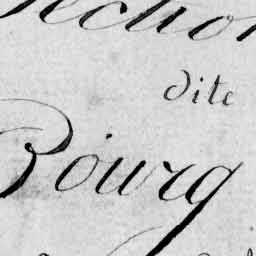 Section
dite
Bourg